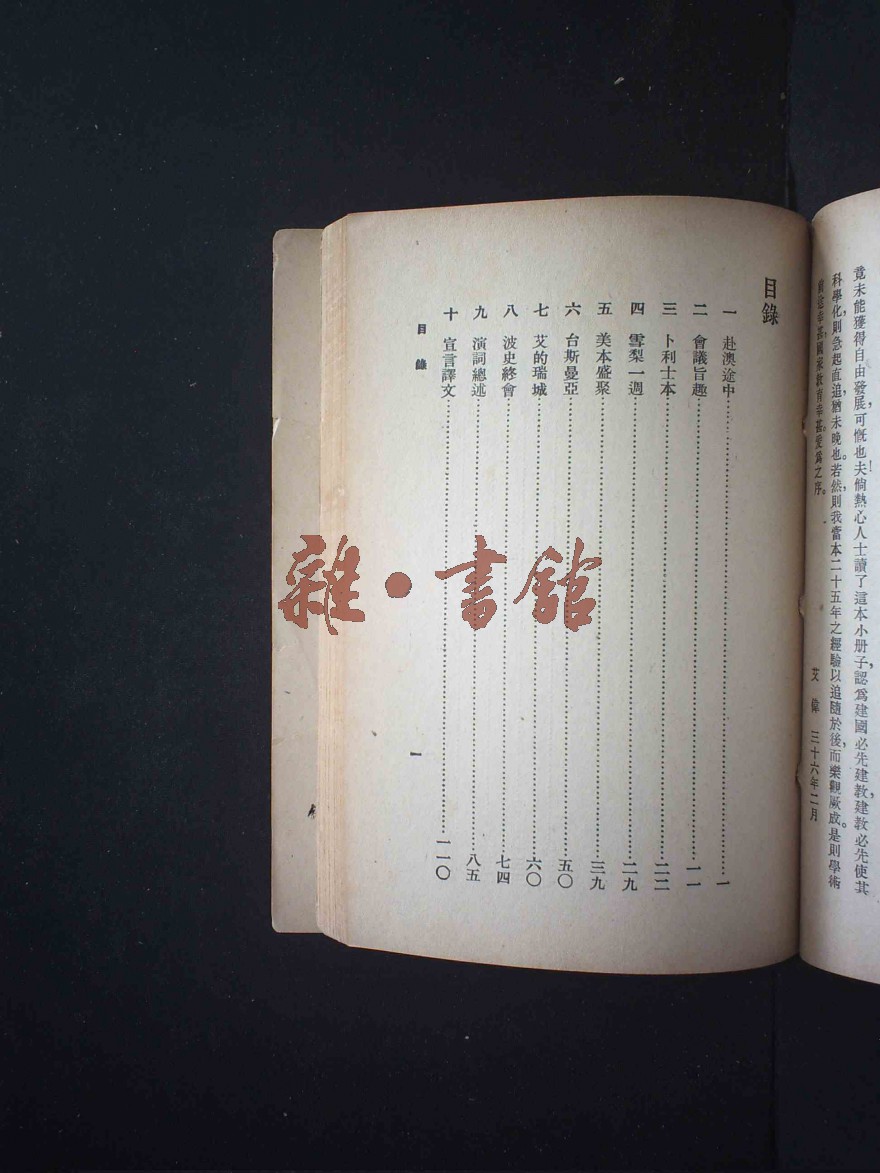 竟未能獲得自由發展可慨也夫!倘熱心人士讀了這本小册子,認爲建國必先建教建教必先使其
科學化,則急起直追猶未晚也。若然,則我當本二十五年之經驗以追隨於後,而樂觀厥成。是則學術
前途幸甚,國家教育幸甚。爰爲之序。
艾偉 三十六年二月
目錄
一 赴澳途中 一
二 會議旨趣 一一
三 卜利士本 二二
四 雪梨一週 二九
五 美本盛聚 三九
六 台斯曼亞 五〇
七 艾的瑞城 六〇
八 波史終會 七四
九 演詞總述 八五
十 宣言譯文 一一〇
目錄
一
雜·書館